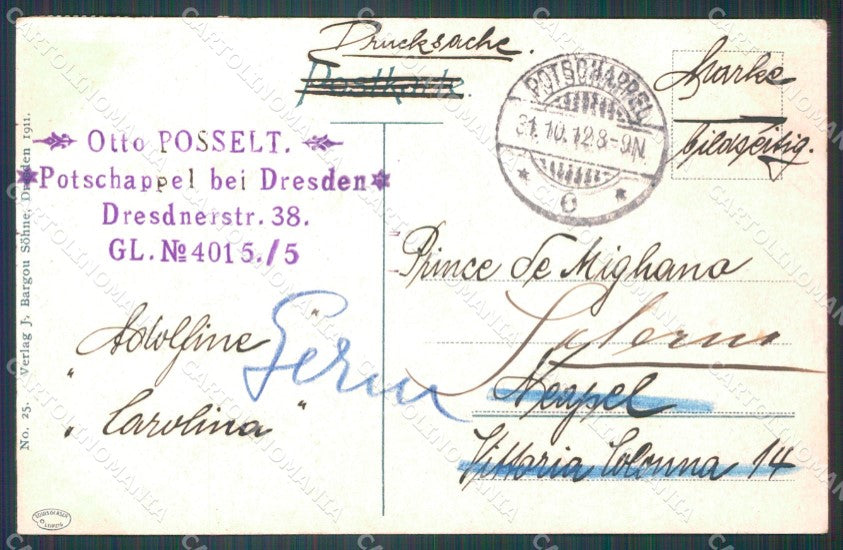 Drucksache.
Postkarte.
POTSCHAPPEL
31.10.12.8-9N.
Marke
bildseitig.
Otto POSSELT.
Potschappel bei Dresden
Dresdnerstr. 38.
GL. № 4015./5
Prince de Mighano
Salerno
Neapel
Vittoria Colonna 14
"Adolfine"
"Carolina"
No. 25. Verlag J. Bargou Söhne, Dresden 1911.
CARTOLINOMANIA